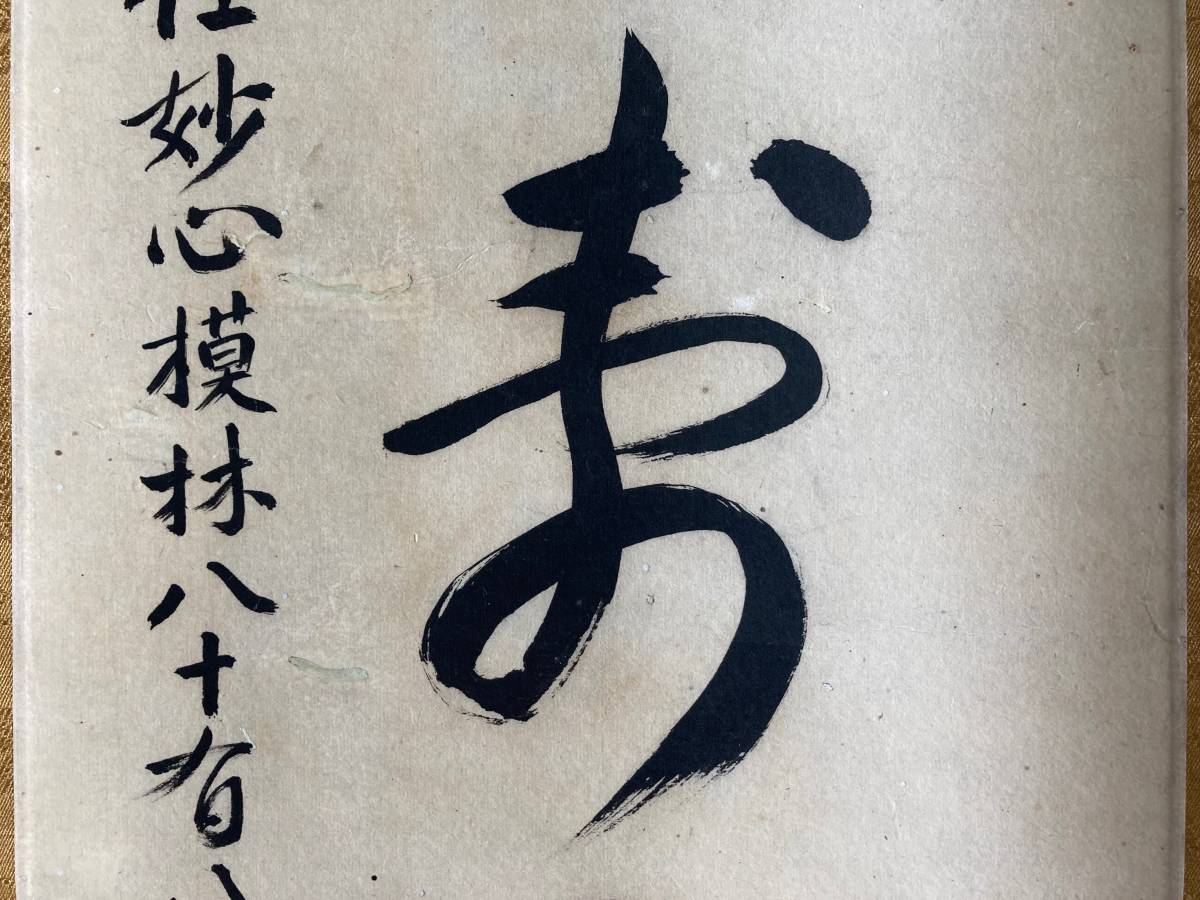 寿
住妙心模林八十有八